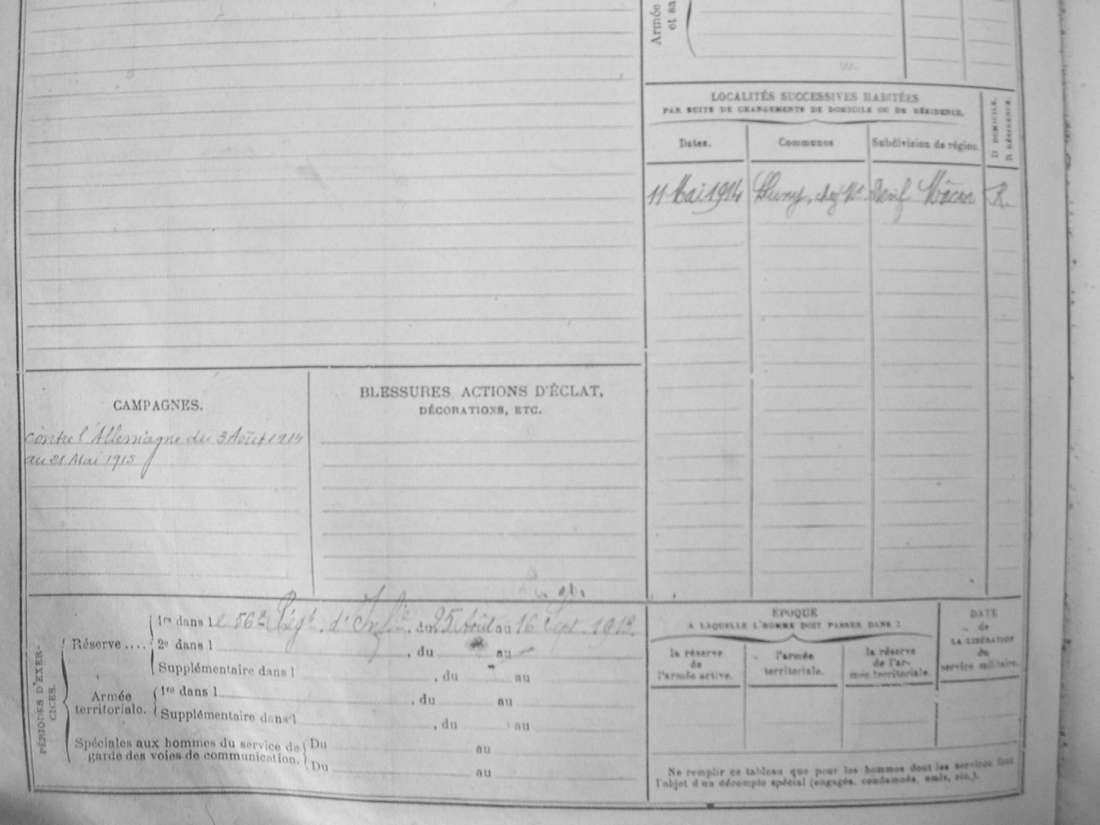 Armée
et
LOCALITÉS SUCCESSIVES HABITÉES
PAR SUITE DE CHANGEMENTS DE DOMICILE OU DE RÉSIDENCE.
D DOMICILE.
R RÉSIDENCE.
Dates. Communes Subdivision de région.
11 Mai 1914 chez Mr Mâcon R.
CAMPAGNES.
contre l'Allemagne du 3 Août 1914
au 31 Mai 1915
BLESSURES, ACTIONS D'ÉCLAT,
DÉCORATIONS, ETC.
PÉRIODES D'EXER-
CICES.
Réserve....
1re dans le 56e Régt d'Infie du 25 Août au 16 Sept. 1912.
2e dans l , du au
Supplémentaire dans l , du au
Armée
territoriale.
1re dans l , du au
Supplémentaire dans l , du au
Spéciales aux hommes du service de
garde des voies de communication.
Du au
Du au
ÉPOQUE
A LAQUELLE L'HOMME DOIT PASSER DANS :
la réserve
de
l'armée active.
l'armée
territoriale.
la réserve
de l'ar-
mée territoriale.
DATE
de
LA LIBÉRATION
du
service militaire.
Ne remplir ce tableau que pour les hommes dont les services font
l'objet d'un décompte spécial (engagés, condamnés, omis, etc.).